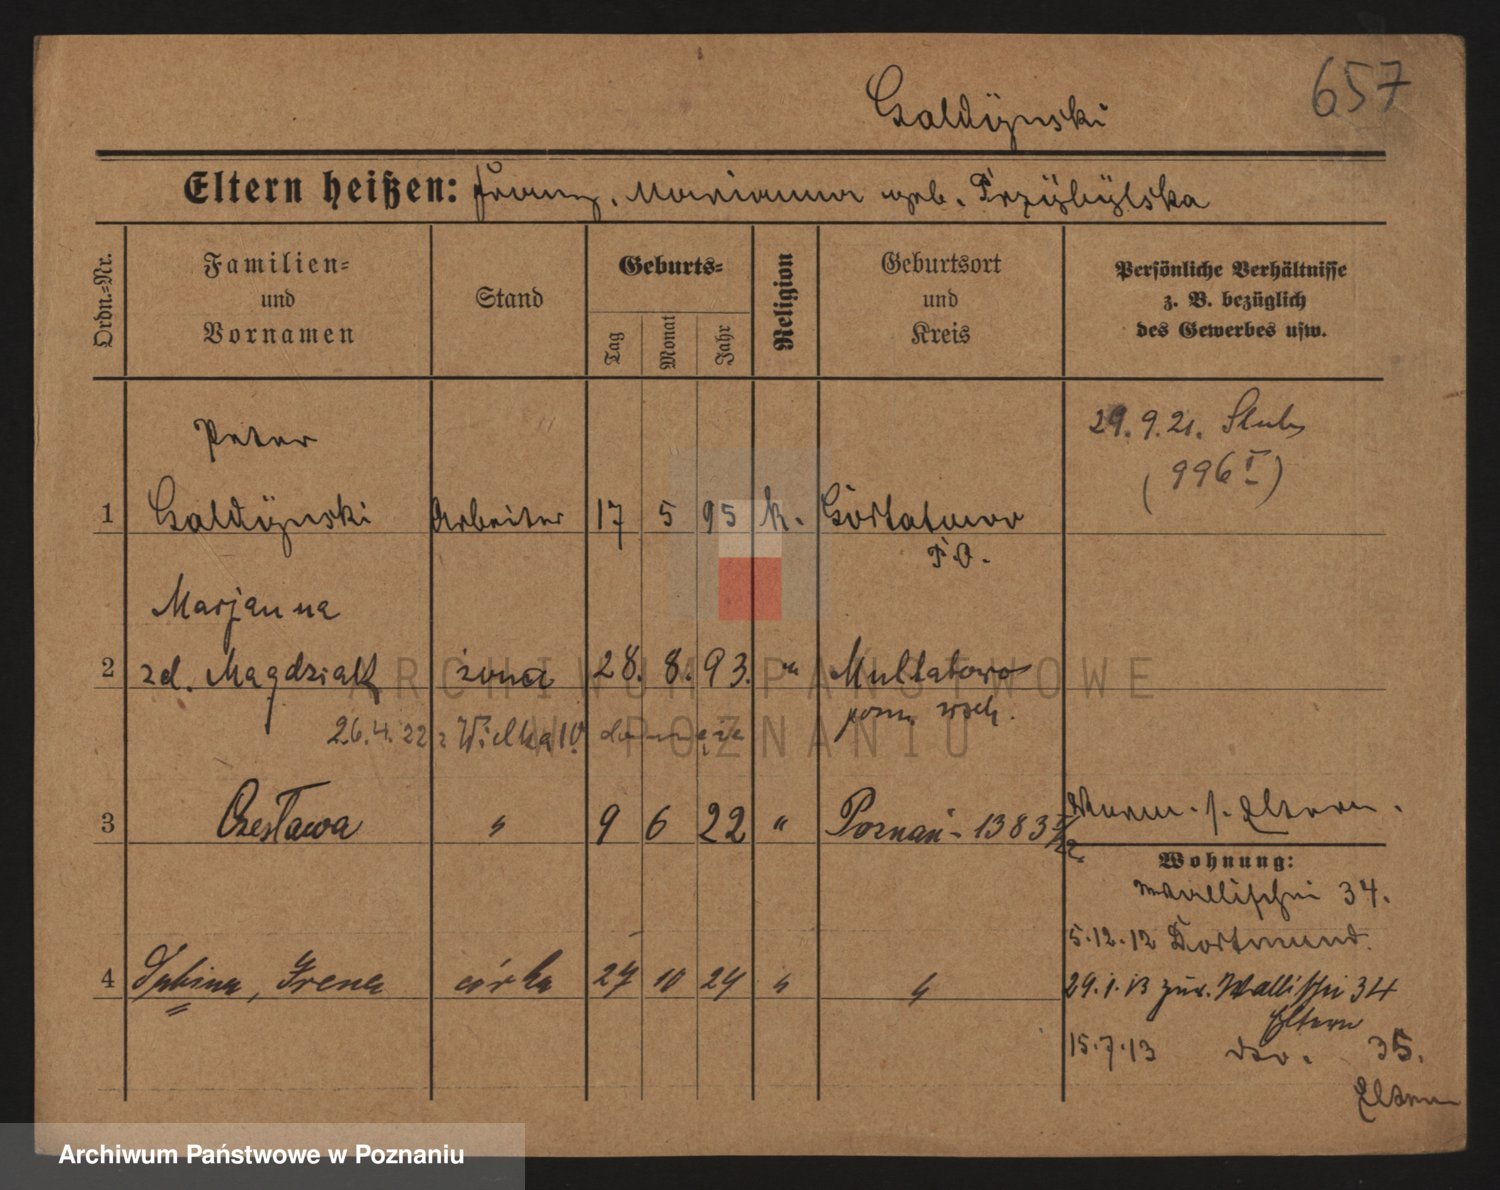 657
Galdÿnski
Eltern heißen: Franz, Marianna geb. Przÿbÿlska
Ordn.=Nr.
Familien=
und
Vornamen
Stand
Geburts=
Tag
Monat
Jahr
Religion
Geburtsort
und
Kreis
Persönliche Verhältnisse
z. B. bezüglich
des Gewerbes usw.
29.9.21. Slub
(996 I)
Peter
1 Galdÿnski Arbeiter 17 5 95 k. Gortatowo
P. O.
Marjanna
2 zd. Magdziak żona 28. 8. 93. " Multatowo
pozn. wsch.
26.4.22 z Wielka 10
3 Czesława " 9 6 22 " Poznań - 1383 I/22.
Eltern.
Wohnung:
Wallischei 34.
5.12.12 Dortmund.
4 Sabina, Irena córka 27 10 24 " "
29.1.13 zur. Wallischei 34
Eltern
15.7.13 dto. 35.
Eltern
ARCHIWUM PAŃSTWOWE
W POZNANIU
Archiwum Państwowe w Poznaniu